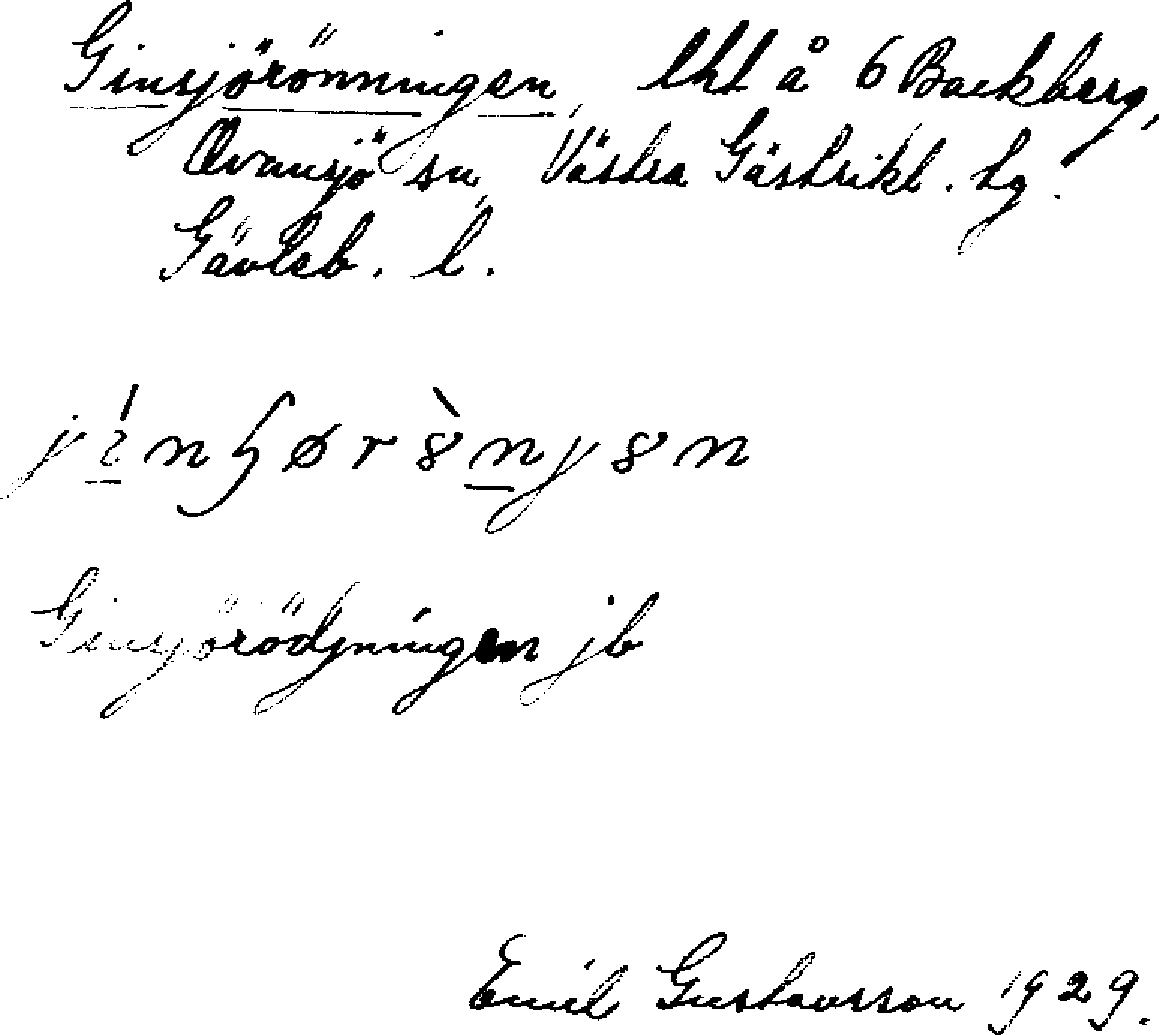 Ginsjörönningen, lht å 6 Backberg,
Ovansjö sn, Västra Gästrikl. tg.
Gävleb. l.
Ginsjörödjningen jb
Emil Gustavsson 1929.